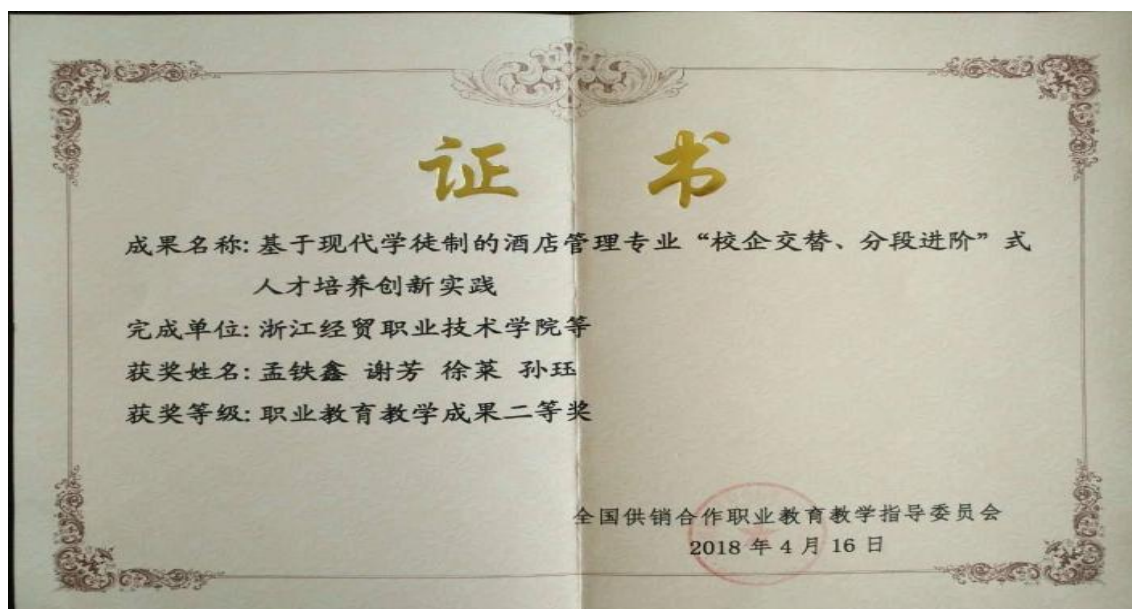 证 书
成果名称: 基于现代学徒制的酒店管理专业“校企交替、分段进阶”式
人才培养创新实践
完成单位: 浙江经贸职业技术学院等
获奖姓名: 孟铁鑫 谢芳 徐菜 孙珏
获奖等级: 职业教育教学成果二等奖
全国供销合作职业教育教学指导委员会
2018 年 4 月 16 日